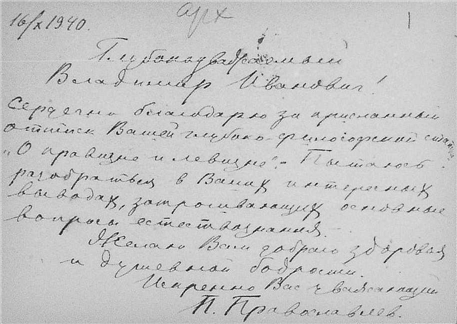 16/X 1940.
Арх
1
Глубокоуважаемый
Владимир Иванович!
Сердечно благодарю за присланный
оттиск Вашей глубоко философской статьи
„О правизне и левизне“. – Пытаюсь
разобраться в Ваших интересных
выводах, затрагивающих основные
вопросы естествознания.
Желаю Вам доброго здоровья
и душевной бодрости.
Искренно Вас уважающий
П. Православлев.